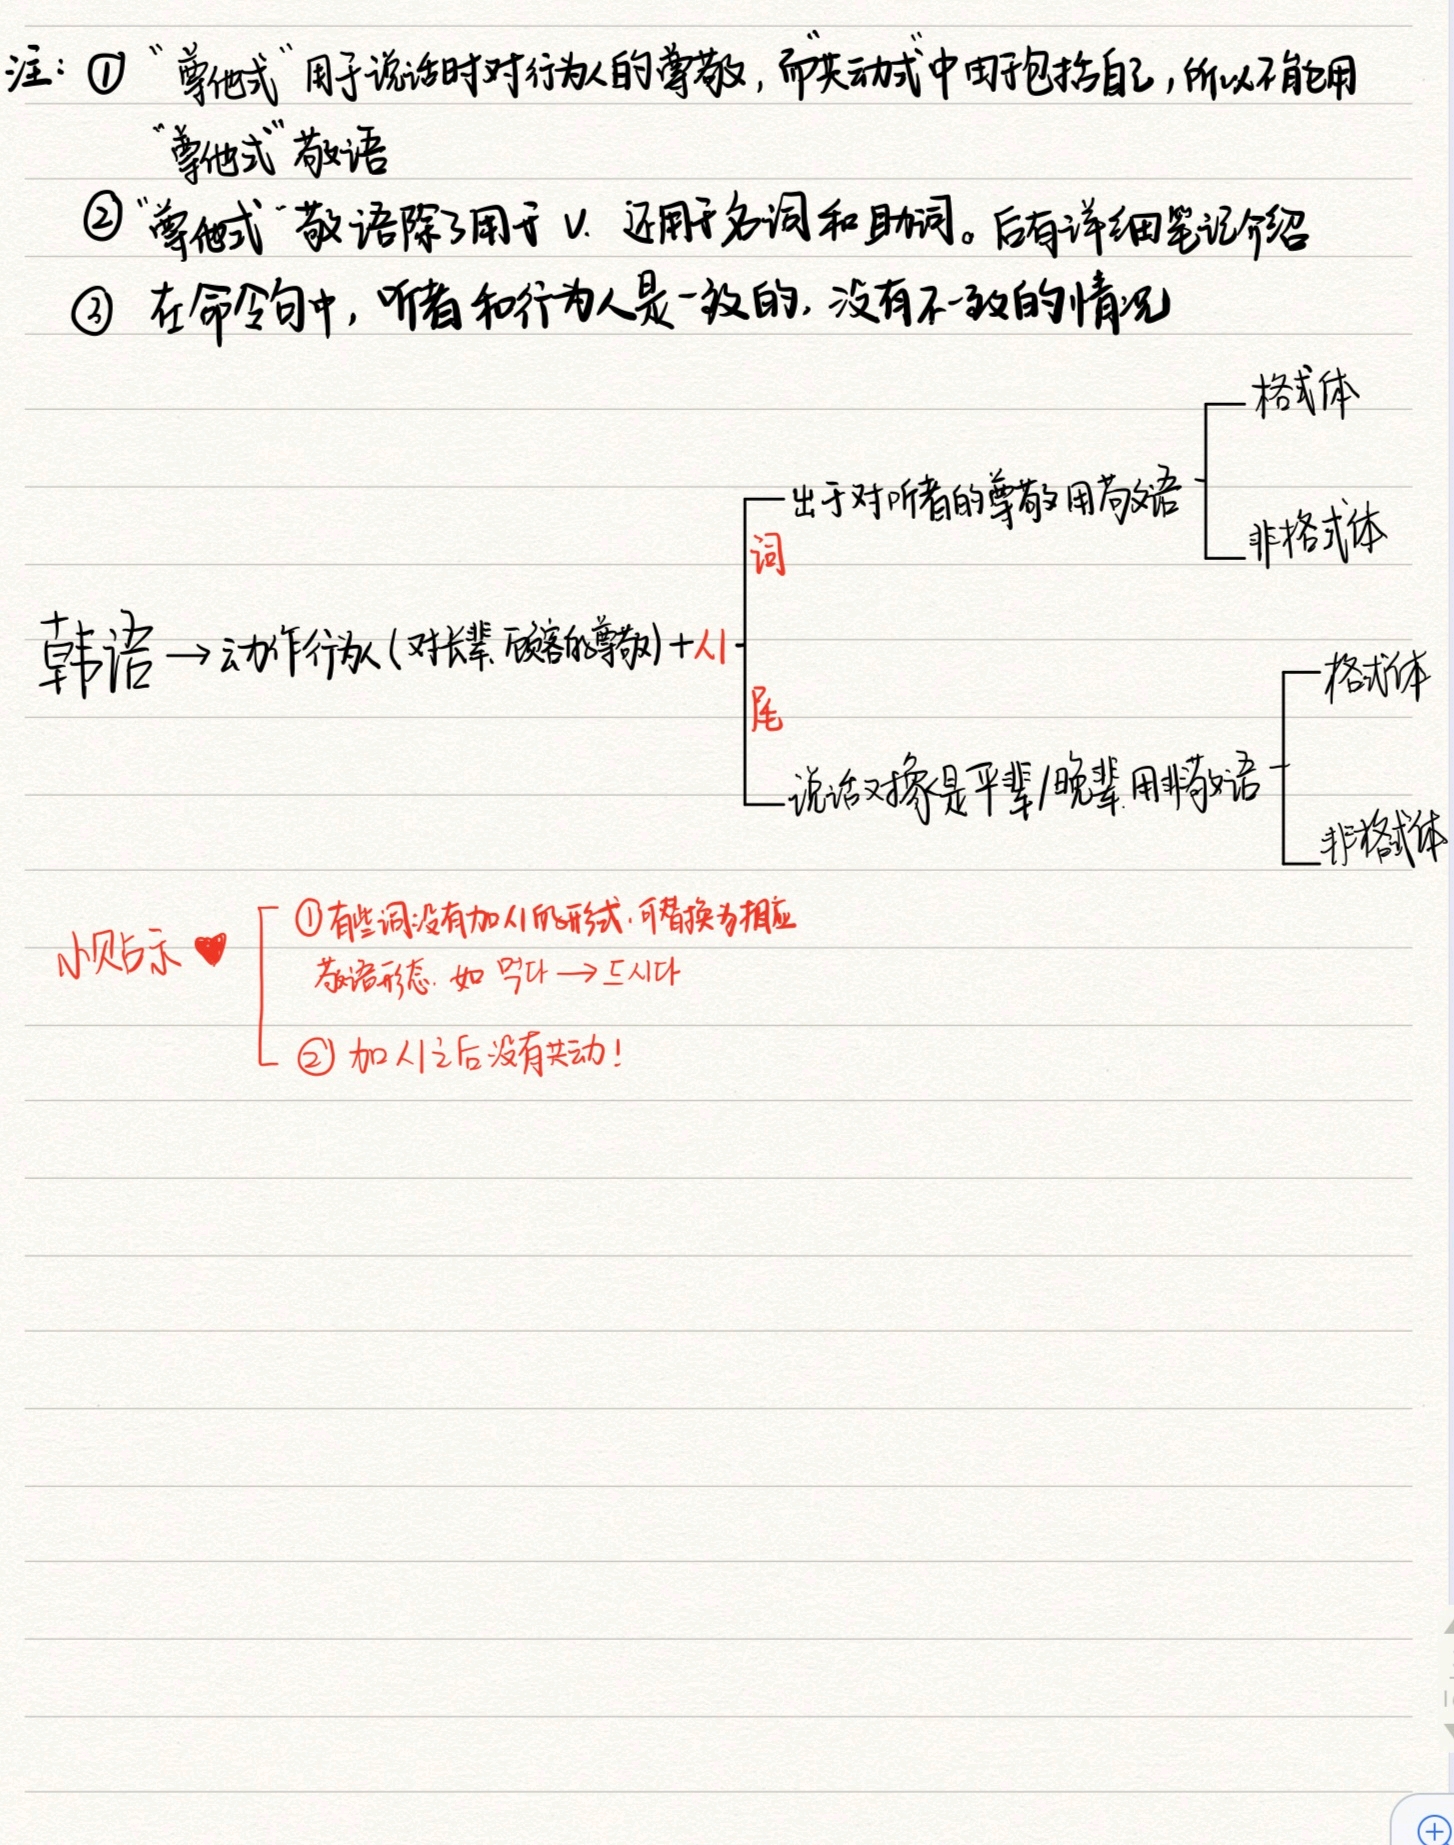 注：① “尊他式”用于说话时对行为人的尊敬，而“共动式”中由于包括自己，所以不能用
“尊他式”敬语
② “尊他式”敬语除了用于 V. 还用于名词和助词。后有详细笔记介绍
③ 在命令句中，听者和行为人是一致的，没有不一致的情况
格式体
出于对听者的尊敬用敬语
非格式体
词
韩语→动作行为人(对长辈、顾客的尊敬)+시
尾
格式体
说话对像是平辈/晚辈.用非敬语
非格式体
小贴示 ♥
①有些词没有加시的形式.可替换为相应
敬语形态. 如 먹다→드시다
② 加시之后没有共动!